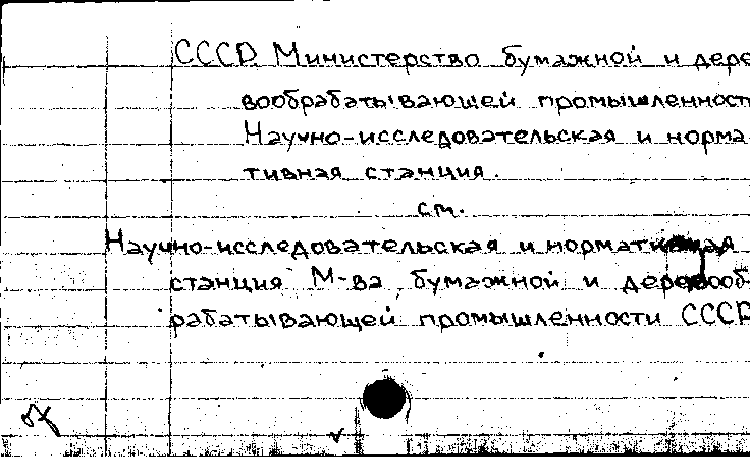 СССР. Министерство бумажной и дере
вообрабатывающей промышленност
Научно-исследовательская и норма-
тивная станция.
см.
Научно-исследовательская и нормативная
станция М-ва бумажной и деревооб-
рабатывающей промышленности СССР